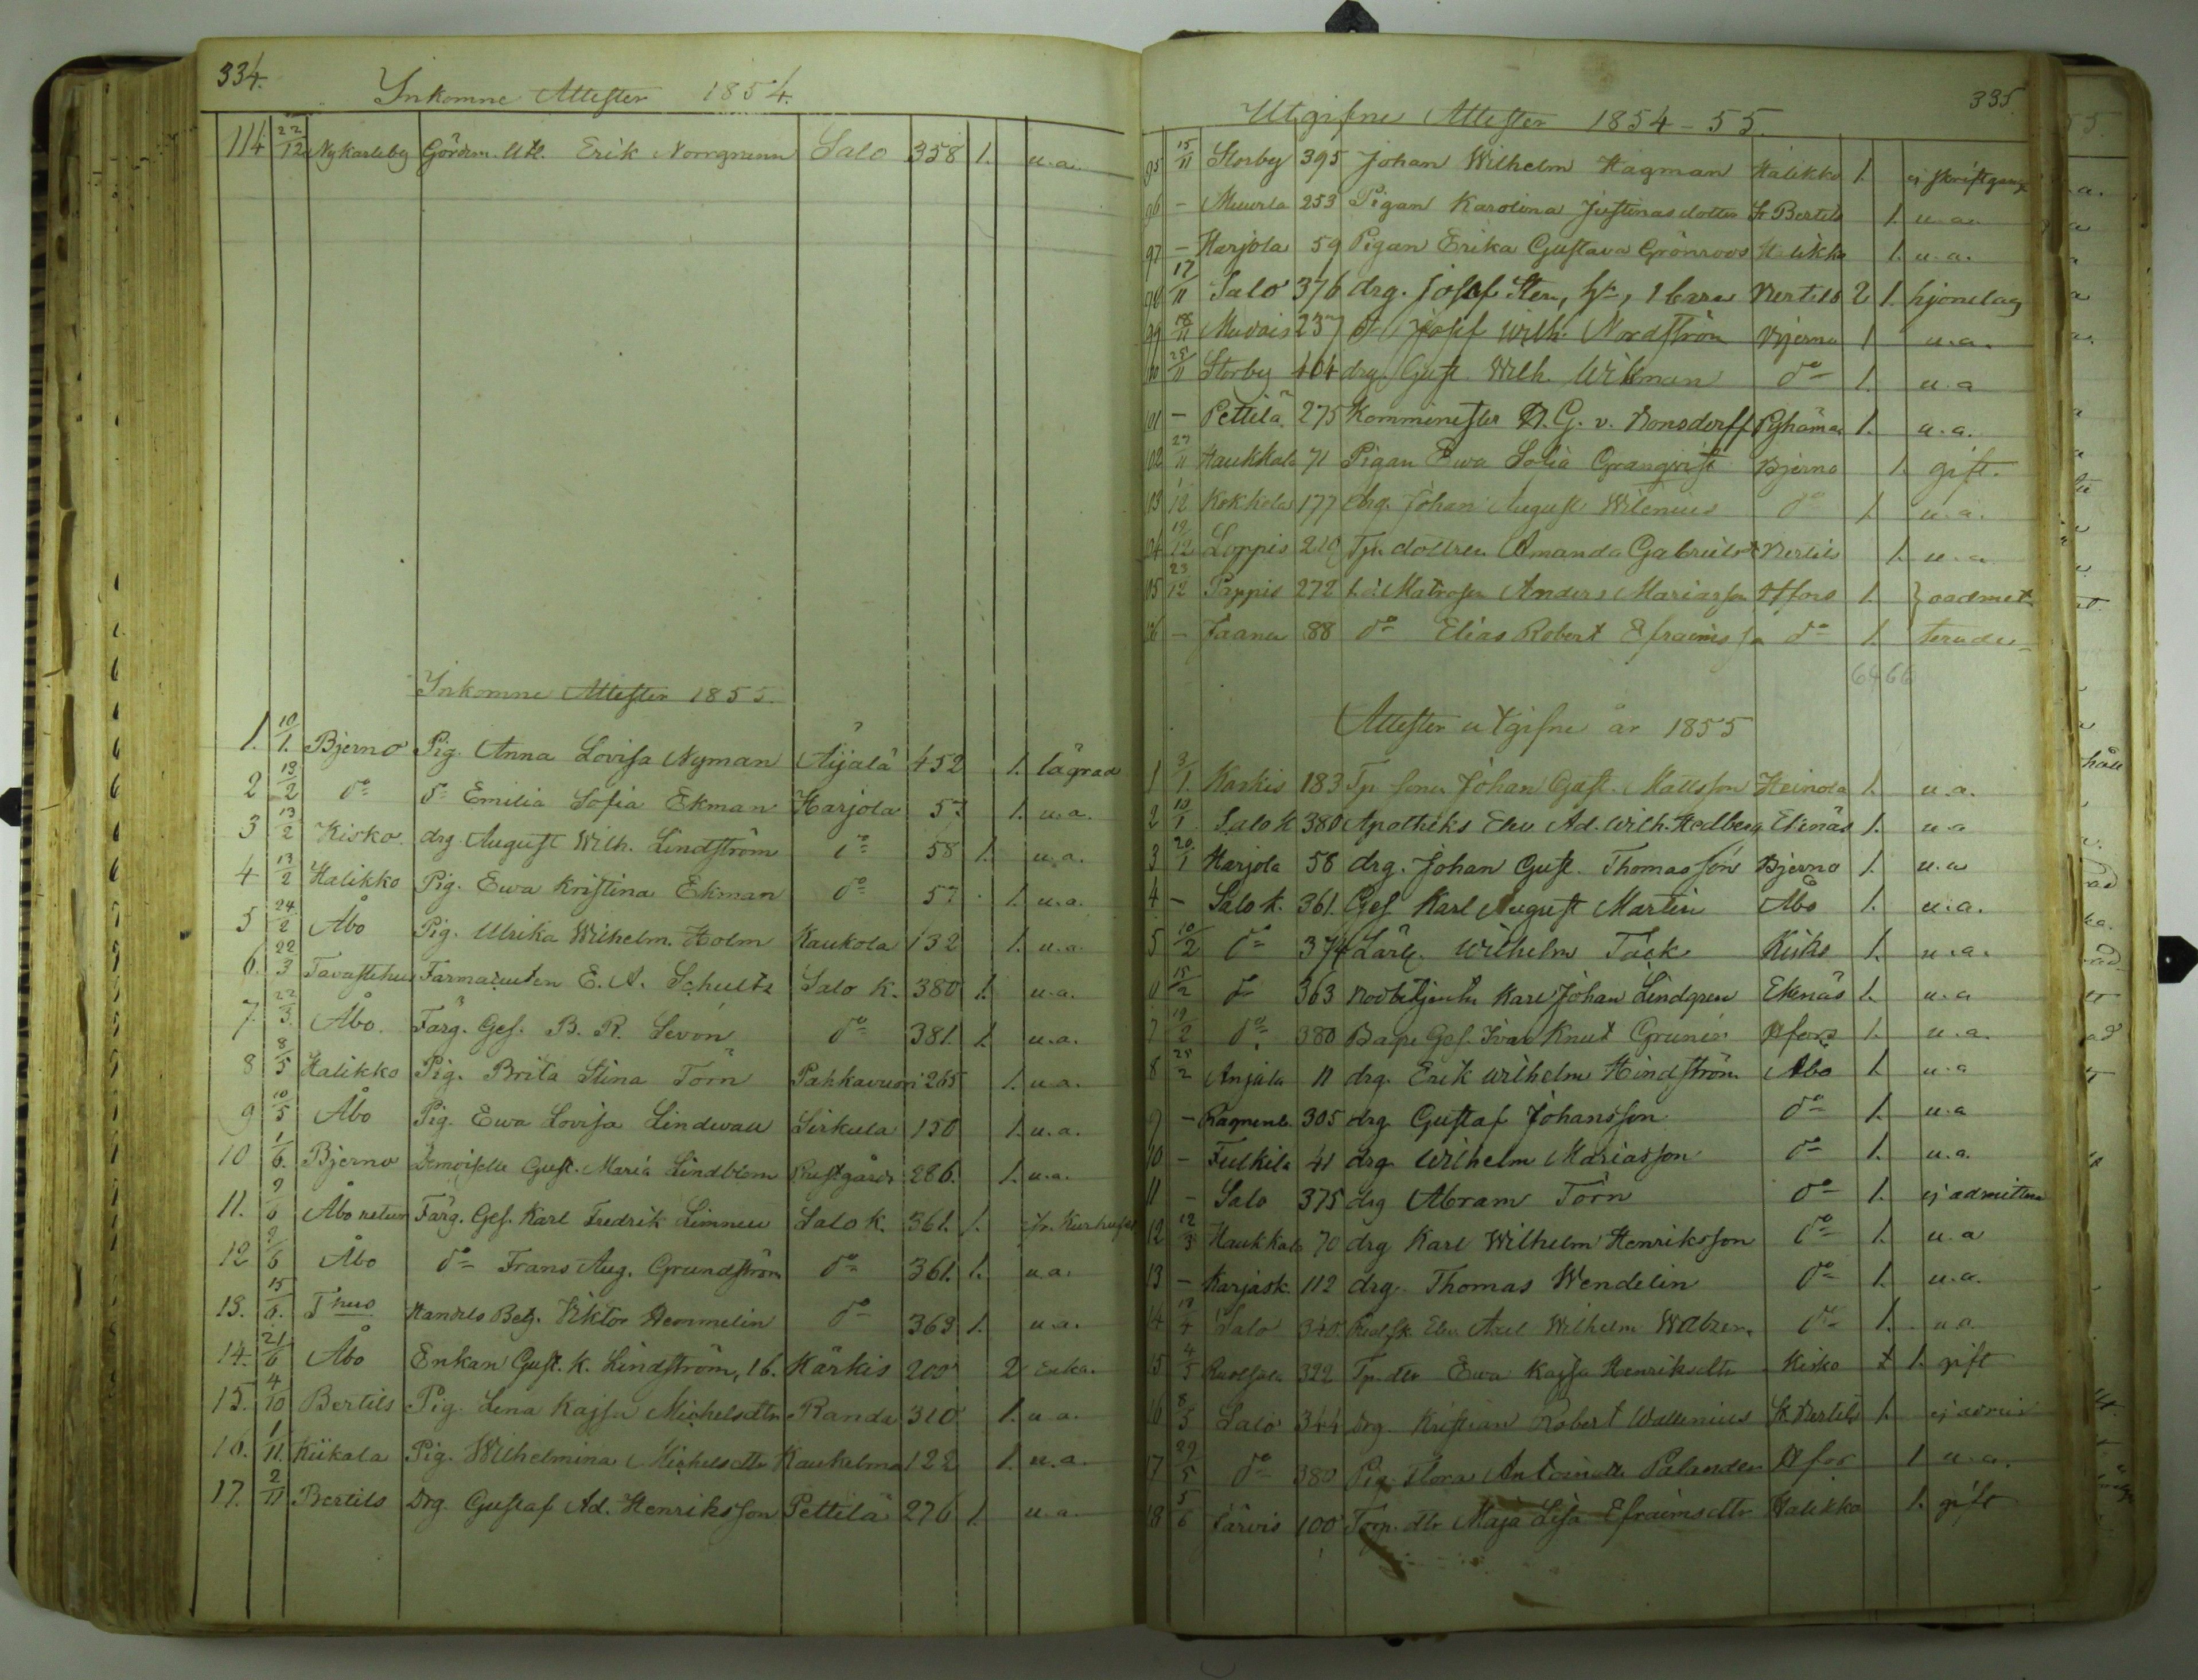 334.
Inkomne Attester 1854.
114 22/12 Nykarleby Gördm. Erik Norrgrann Salo 358 1. u.a.
Inkomne Attester 1855.
1. 10/1. Bjerno Pig. Anna Lovisa Nyman Aijälä 452 1. lägrad
2 13/2 do do Emilia Sofia Ekman Harjola 57 1. u.a.
3 13/2 Kisko. drg August Wilh. Lindström do 58 1. u.a.
4 13/2 Halikko Pig. Ewa Kristina Ekman do 57 1. u.a.
5 24/2 Åbo Pig. Ulrika Wilhelm. Holm Kaukola 132 1. u.a.
6. 22/3 Tavastehus Farmaceuten E. A. Schultz Salo K. 380 1. u.a.
7. 22/3. Åbo. Färg. Ges. B. R. Levón do 381. 1. u.a.
8 8/5 Halikko Pig. Brita Stina Törn Pahkavuori 265 1. u.a.
9 10/5 Åbo Pig. Ewa Lovisa Lindwall Sirkula 150 1. u.a.
10 1/6. Bjerno Demoiselle Gust. Maria Lindblom Prestgård 286. 1. u.a.
11. 9/6 Åbo retur Färg. Ges. Karl Fredrik Limnell Salo K. 361. 1. fr. Kurhuset
12 9/6 Åbo do Frans Aug. Grundström do 361. 1. u.a.
13. 15/6. Thus Handels Betj. Viktor Hemmelin do 363 1. u.a.
14. 21/6 Åbo Enkan Gust. K. Lindström, 1 b. Kärkis 200 2 enka.
15. 4/10 Bertils Pig. Lena Kajsa Michelsdtr Randa 310 1. u.a.
16. 1/11. Kiikala Pig. Wilhelmina Michelsdtr Kaukelma 122 1. u.a.
17. 2/11 Bertils Drg. Gustaf Ad. Henriksson Pettilä 276 1. u.a.
335
Utgifne Attester 1854–55.
95 15/11 Storby 395 Johan Wilhelm Hagman Halikko 1. ej skriftgång
96 – Muurla 253 Pigan Karolina Justinasdotter St Bertils 1. u.a.
97 – Harjola 59 Pigan Erika Gustava Grönroos Halikko 1. u.a.
98 17/11 Salo 376 drg. Josef Sten, h., 1 barn Bertils 2 1. hjonelag
99 18/11 237 do Josef Wilh. Nordström Bjerno 1 u.a.
100 25/11 Storby 404 drg. Gust. Wilh. Wikman do 1. u.a
101 – Pettilä 275 Komminister A. G. v. Bonsdorff Pyhämaa 1. u.a.
102 27/11 Haukkala 71 Pigan Ewa Sofia Granqvist Bjerno 1. gift.
103 1/12 Kokkola 177 drg. Johan August Wilenius do 1. u.a.
104 19/12 Loppis 210 Tp. dottren Amanda Gabrielsd Bertils 1. u.a
105 23/12 Pappis 272 Matrosen Anders Mariasson Hfors 1. } oadmit
106 – 88 do Elias Robert Efraimsson do 1. terade
64 66
Attester utgifne år 1855
1 3/1. Karkis 183 Tp. sonen Johan Gust. Mattsson Heinola 1. u.a.
2 13/1 Salo K 380 Apotheks Elev Ad. Wilh. Hedberg Ekenäs 1. u.a
3 20/1 Harjola 58 drg. Johan Gust. Thomasson Bjerno 1. u.a
4 – Salo K. 361. Ges Karl August Martin Åbo 1. u.a.
5 10/2 do 374 Lärl. Wilhelm Täck Kisko 1. u.a.
6 15/2 do 363 Bodbetjenten Karl Johan Lindgren Ekenäs 1. u.a
7 19/2 do 380 Bag. Ges. Ivar Knut Grunér Hfors 1. u.a.
8 25/2 Anjala 11 drg. Erik Wilhelm Hindström Åbo 1. u.a
9 – 305 drg. Gustaf Johansson do 1. u.a
10 – Fulkila 41 drg Wilhelm Mariasson do 1. u.a.
11 – Salo 375 drg Abram Törn do 1. ej admitterad
12 12/3 Haukkala 70 drg Karl Wilhelm Henriksson do 1. u.a
13 – Karjask. 112 drg. Thomas Wendelin do 1. u.a.
14 19/4 Salo 340 Realsk. Elev. Axel Wilhelm do 1. u.a.
15 4/5 322 Tp. dtr Ewa Kajsa Henriksdtr Kisko 1. gift
16 8/5 Salo 344 Drg. Kristian Robert Wallenius St Bertils 1.
17 29/5 do 380 Pig. Flora Antoinette Palander Hfor 1 u.a.
18 5/6 Järvis 100 Torp. dtr Maja Lisa Efraimsdtr Halikko 1. gift